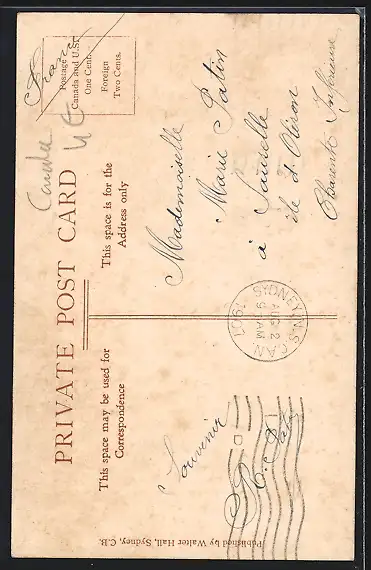 PRIVATE POST CARD
Canada
France
Postage
Canada and U.S.
One Cent.
Foreign
Two Cents.
This space may be used for
Correspondence
This space is for the
Address only
Souvenir
SYDNEY N.S. CAN.
AUG 2
9 AM
1907
Mademoiselle
Marie Patin
à Sauzelle
ile d'Oléron
Charente Inférieure
Published by Walter Hall, Sydney, C.B.